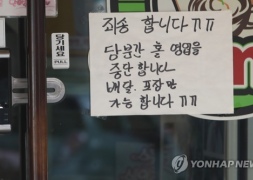 죄송 합니다 ㄲㄲ
당분간 홀 영업을
중단 합니다
배달. 포장 만
가능 합니다 ㄲㄲ
당기세요
PULL
YONHAP NEWS